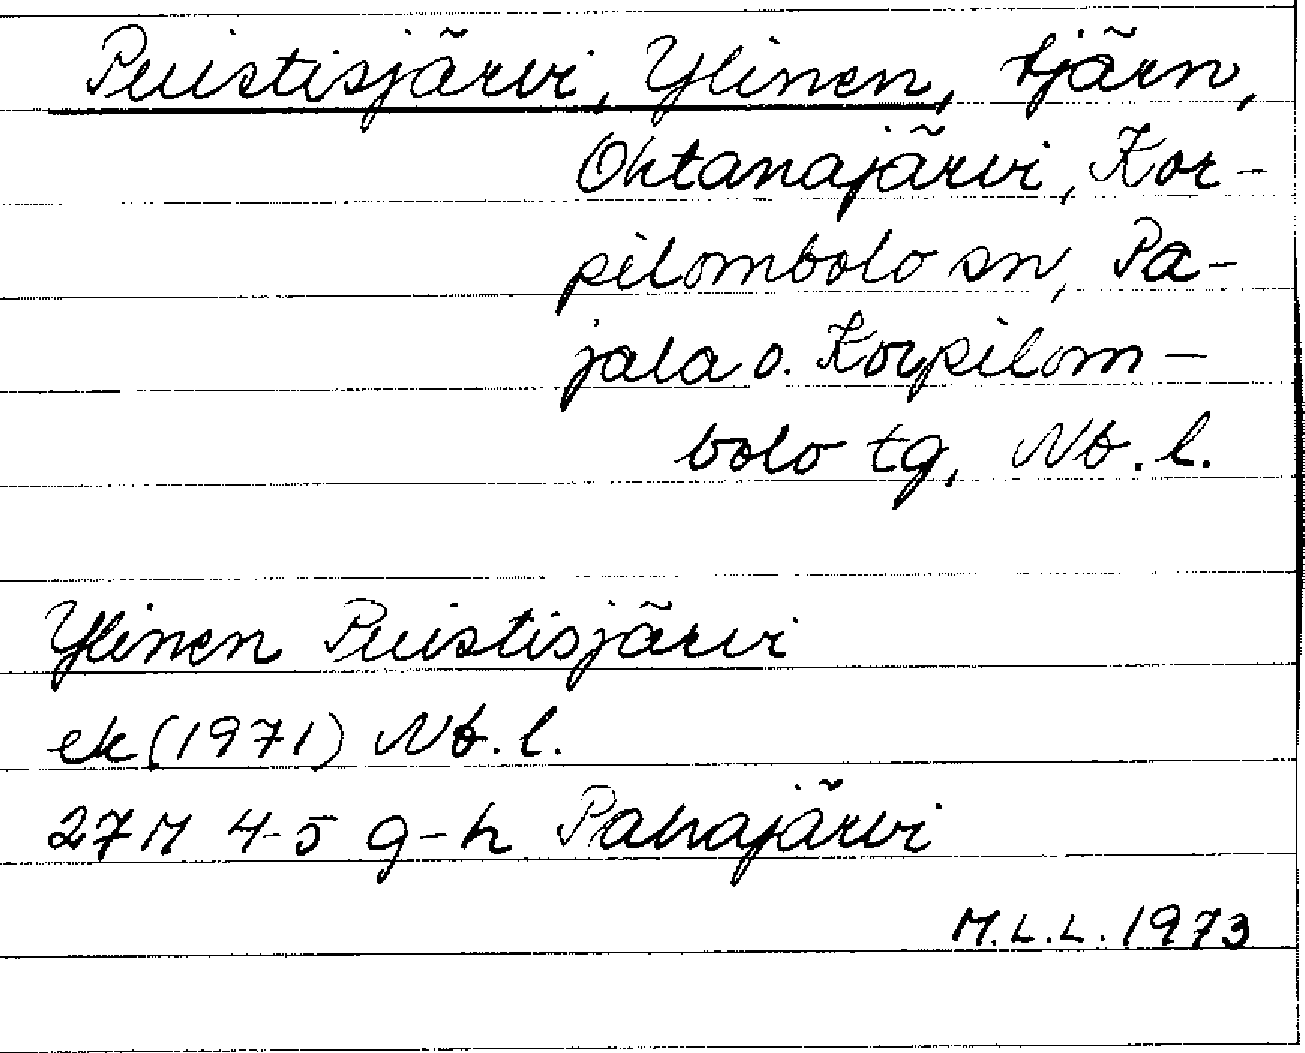 Puistisjärvi, Ylinen, tjärn,
Ohtanajärvi, Kor-
pilombolo sn, Pa-
jala o. Korpilom-
bolo tg, Nb. l.
Ylinen Puistisjärvi
ek (1971) Nb. l.
27M 4-5 g-h Pahajärvi
M.L.L. 1973